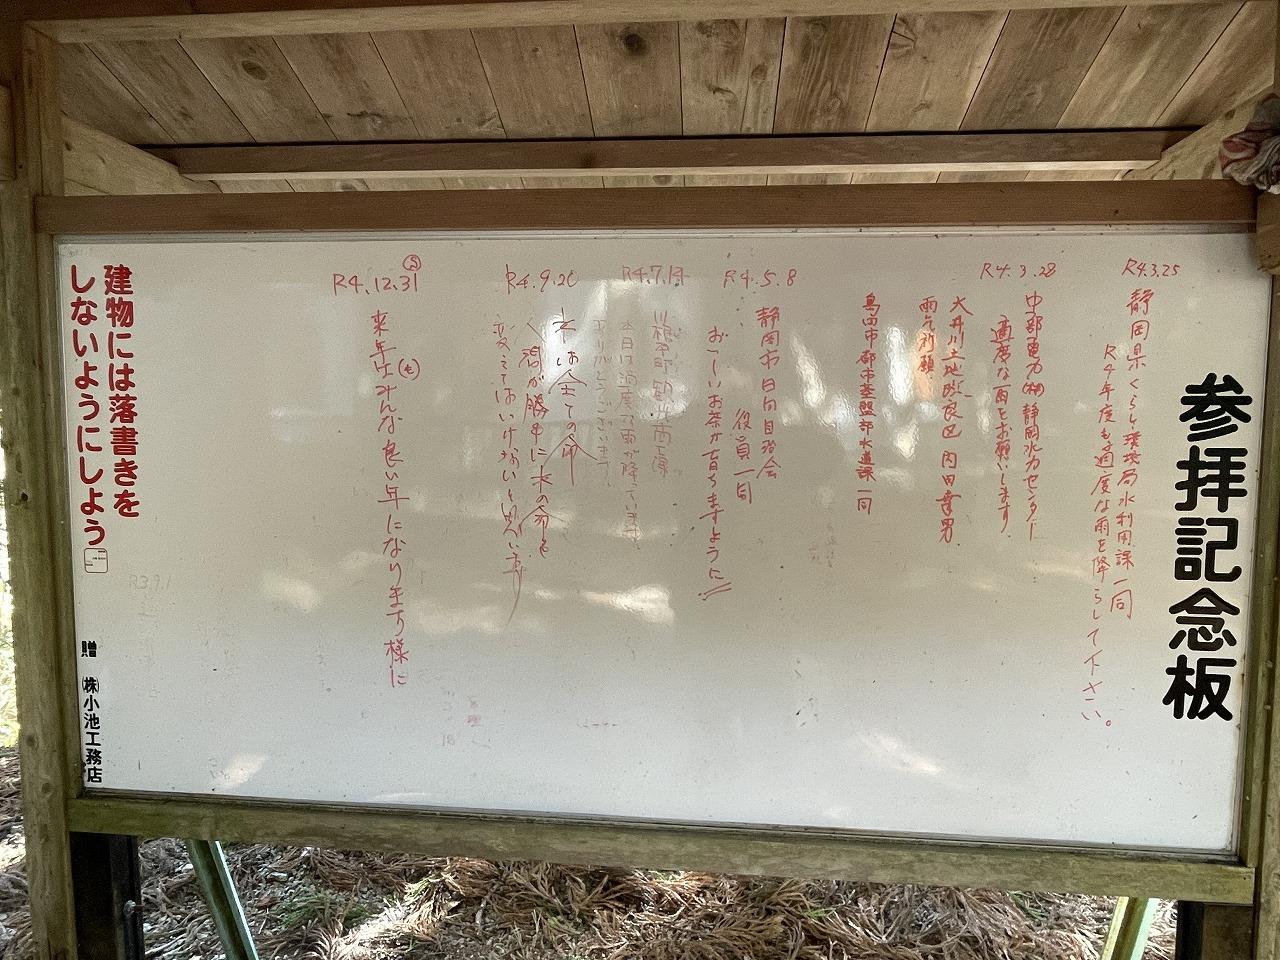 参拝記念板
R4.3.25
静岡県くらし環境局水利用課一同
R4年度も適度な雨を降らして下さい。
R4.3.28
中部電力㈱静岡水力センター
適度な雨をお願いします
大井川土地改良区 内田幸男
雨乞祈願
島田市都市基盤部水道課一同
R4.5.8
静岡市日向自治会
役員一同
おいしいお茶が育ちますように!!
R4.7.14
川根本町観光商工課
本日は適度な雨が降っています。
ありがとうございます。
R4.9.20
水は全ての命
R4.12.31
来年はみんな良い年になります様に
(も)
R3.9.1
建物には落書きを
しないようにしよう
贈 ㈱小池工務店